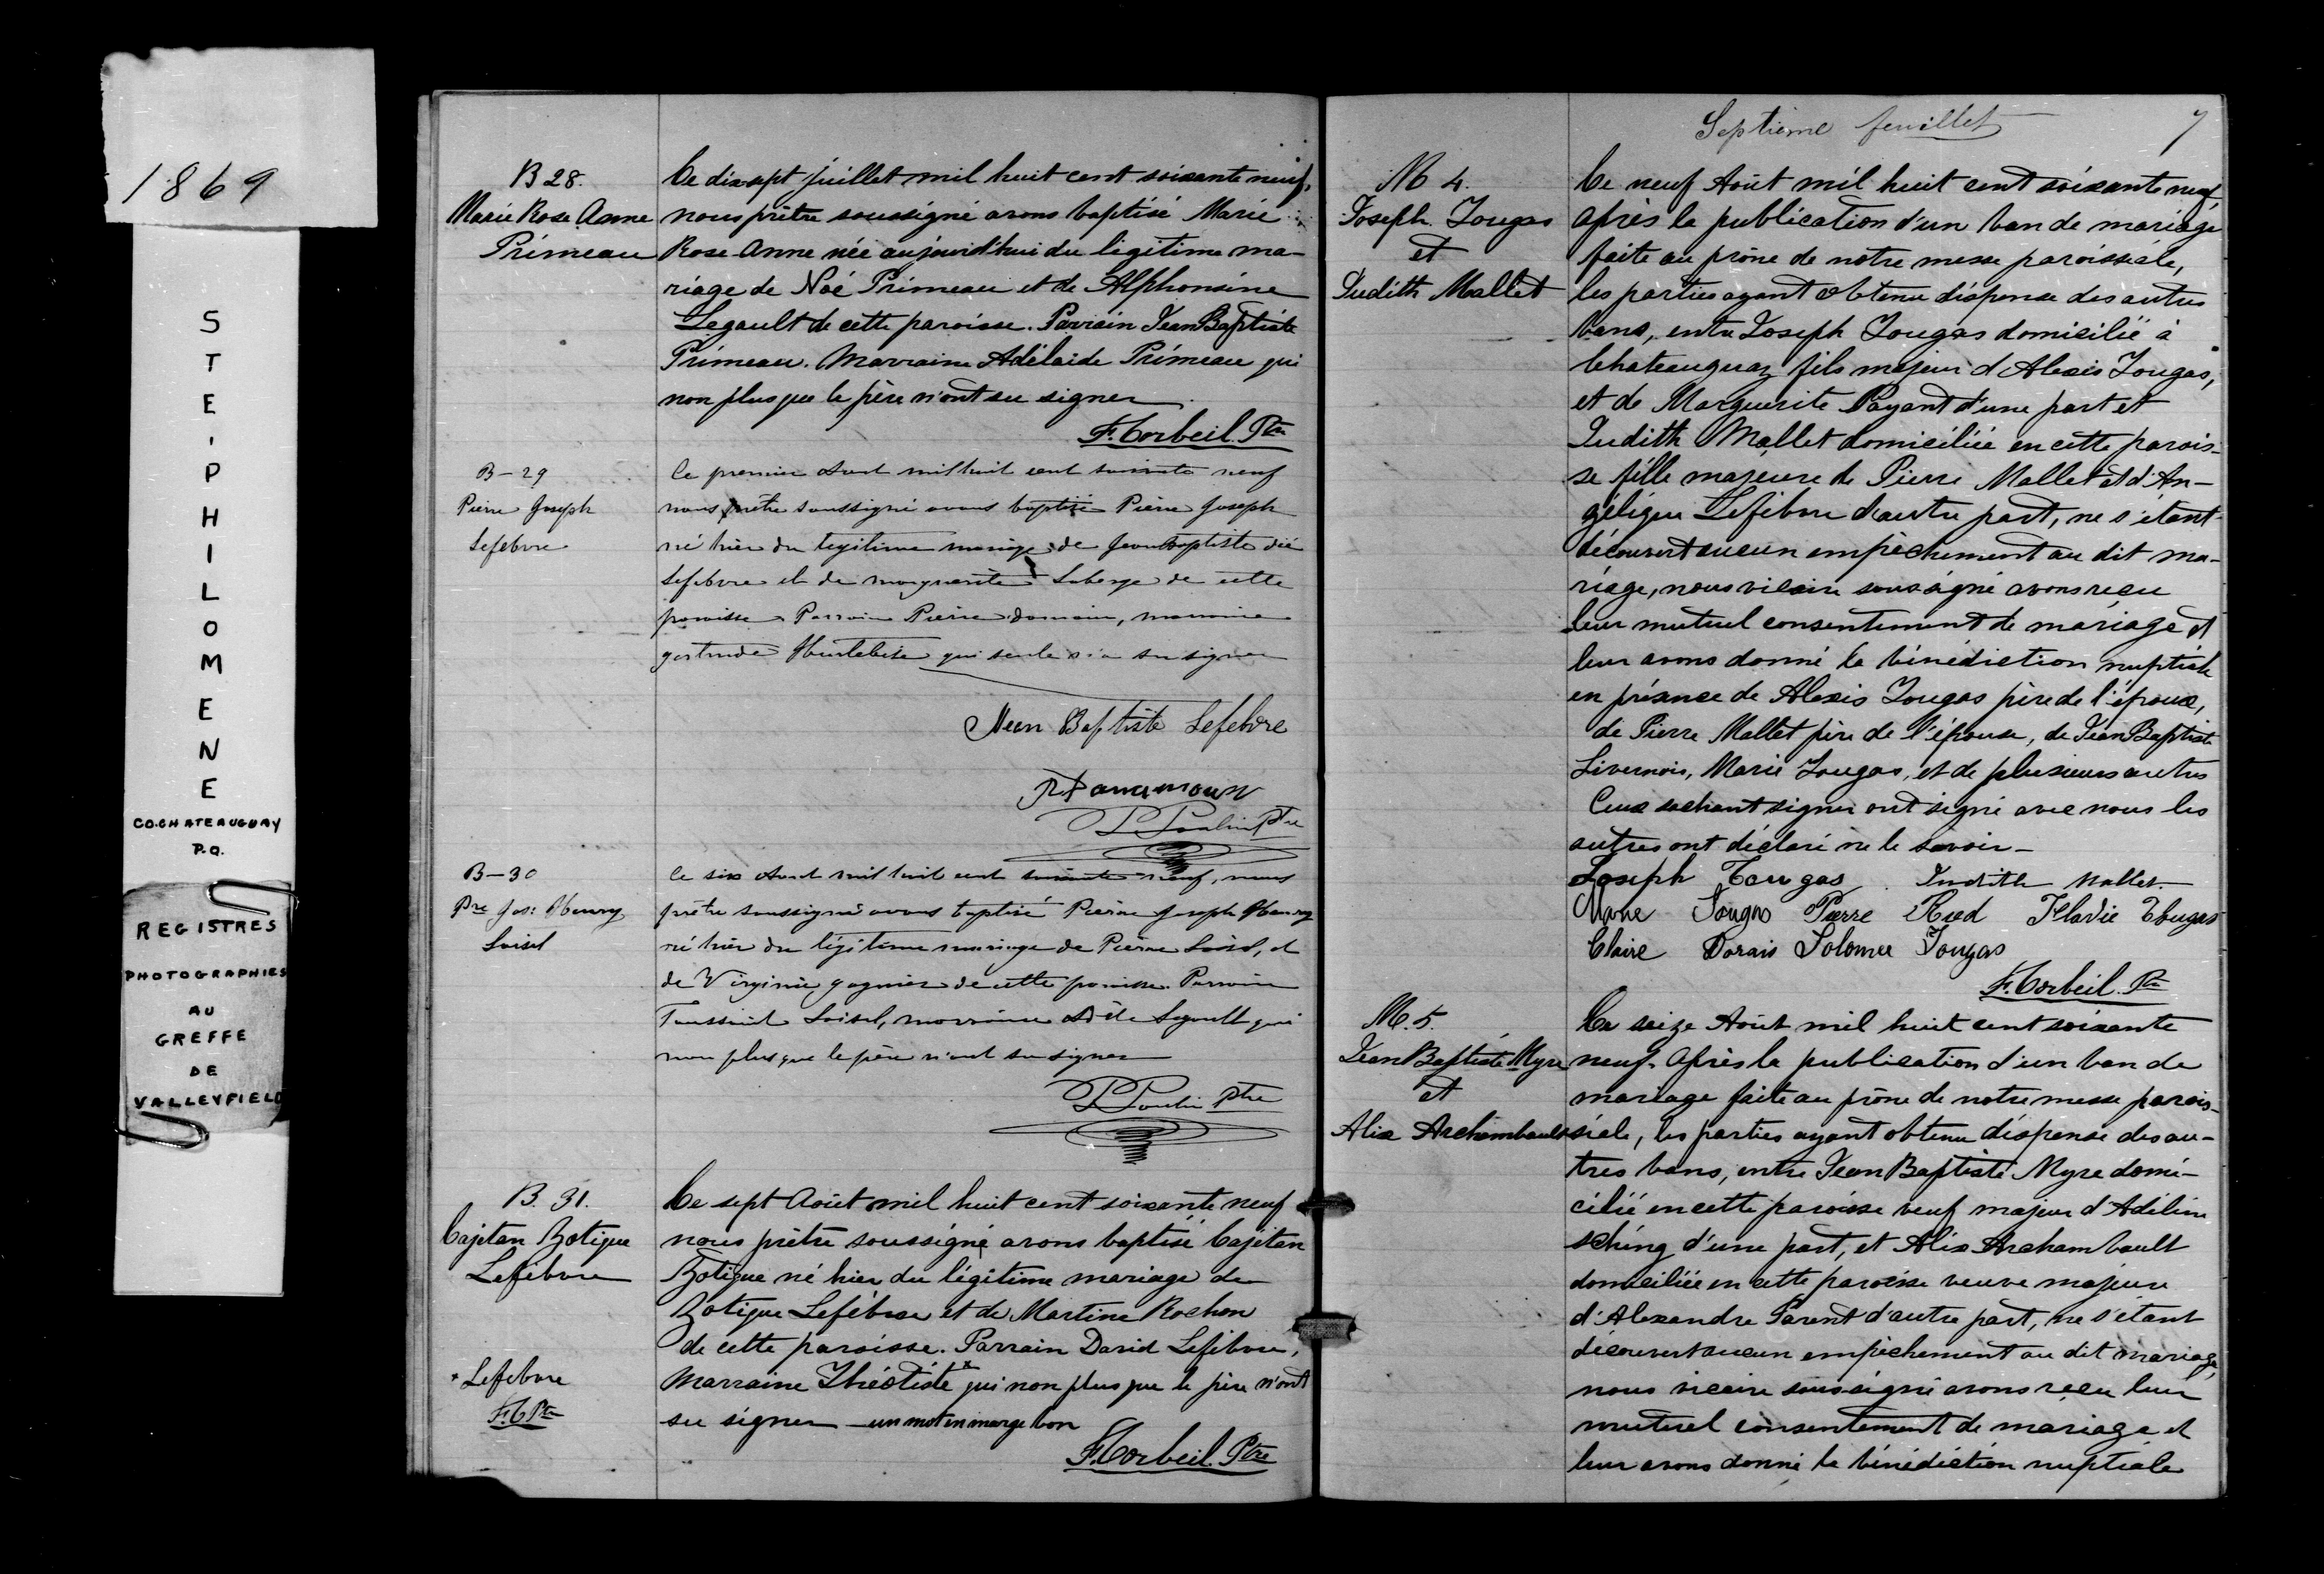 1869
STE. PHILOMENE
CO. CHATEAUGUAY
P.Q.
REGISTRES
PHOTOGRAPHIES
AU
GREFFE
DE
VALLEYFIELD
B 28.
Marie Rose Anne
Primeau
Ce dix sept juillet mil huit cent soixante neuf,
nous prêtre soussigné avons baptisé Marie
Rose Anne née aujourd'hui du légitime ma-
riage de Noé Primeau et de Alphonsine
Legault de cette paroisse. Parrain Jean Baptiste
Primeau. Marraine Adélaide Primeau qui
non plus que le père n'ont su signer.
F. Corbeil. Ptre
B-29
Pierre Joseph
Lefebvre
le premier Aout mil huit cent soixante neuf
nous prêtre soussigné avons baptisé Pierre Joseph
né hier du legitime mariage de Jean Baptiste
Lefebvre et de marguerite Laberge de cette
paroisse Parrain Pierre, marraine
gertrude qui seule n'a su signer
Jean Baptiste Lefebvre
P Poulin Ptre
B-30
Pre Jos: Henry
Loisel
le six Aout mil huit cent soixante neuf, nous
prêtre soussigné avons baptisé Pierre Joseph Henry
né hier du légitime mariage de Pierre Loisel, et
de Virginie gagnier de cette paroisse. Parrain
Toussaint Loisel, marraine Adèle Legault qui
non plus que le père n'ont su signer
P Poulin Ptre
B. 31.
Cajétan Zotique
Lefebvre
Ce sept Août mil huit cent soixante neuf
nous prêtre soussigné avons baptisé Cajétan
Zotique né hier du légitime mariage de
Zotique Lefebvre et de Martine Rochon
de cette paroisse. Parrain David Lefebvre,
Marraine Théotiste * qui non plus que le père n'ont
su signer un mot en marge bon
* Lefebvre
F. C Ptre
F. Corbeil. Ptre
Septième feuillet 7
M 4.
Joseph Tougas
et
Judith Mallet
Ce neuf Août mil huit cent soixante neuf,
après la publication d'un ban de mariage
faite au prône de notre messe paroissiale,
les parties ayant obtenu dispense des autres
bans, entre Joseph Tougas domicilié à
Chateauguay fils majeur d'Alexis Tougas,
et de Marguerite Payant d'une part et
Judith Mallet domiciliée en cette parois-
se fille majeure de Pierre Mallet et d'An-
gélique Lefebvre d'autre part, ne s'étant
découvert aucun empêchement au dit ma-
riage, nous vicaire soussigné avons reçu
leur mutuel consentement de mariage et
leur avons donné la bénédiction nuptiale
en présence de Alexis Tougas père de l'époux,
de Pierre Mallet père de l'épouse, de Jean Baptiste
Livernois, Marie Tougas, et de plusieurs autres
Ceux sachant signer ont signé avec nous les
autres ont déclaré ne le savoir-
Joseph Tougas. Judith Mallet.
Marie Tougas Pierre Flavie Tougas
Claire Dorais Solomée Tougas
F. Corbeil. Ptre
M. 5.
Jean Baptiste Myre
et
Alix Archambault
Ce seize Août mil huit cent soixante
neuf. Après la publication d'un ban de
mariage faite au prône de notre messe parois-
siale, les parties ayant obtenu dispense des au-
tres bans, entre Jean Baptiste Myre domi-
cilié en cette paroisse veuf majeur d'Adéline
d'une part, et Alix Archambault
domiciliée en cette paroisse veuve majeure
d'Alexandre Parent d'autre part, ne s'étant
découvert aucun empêchement au dit mariage,
nous vicaire soussigné avons reçu leur
mutuel consentement de mariage et
leur avons donné la bénédiction nuptiale